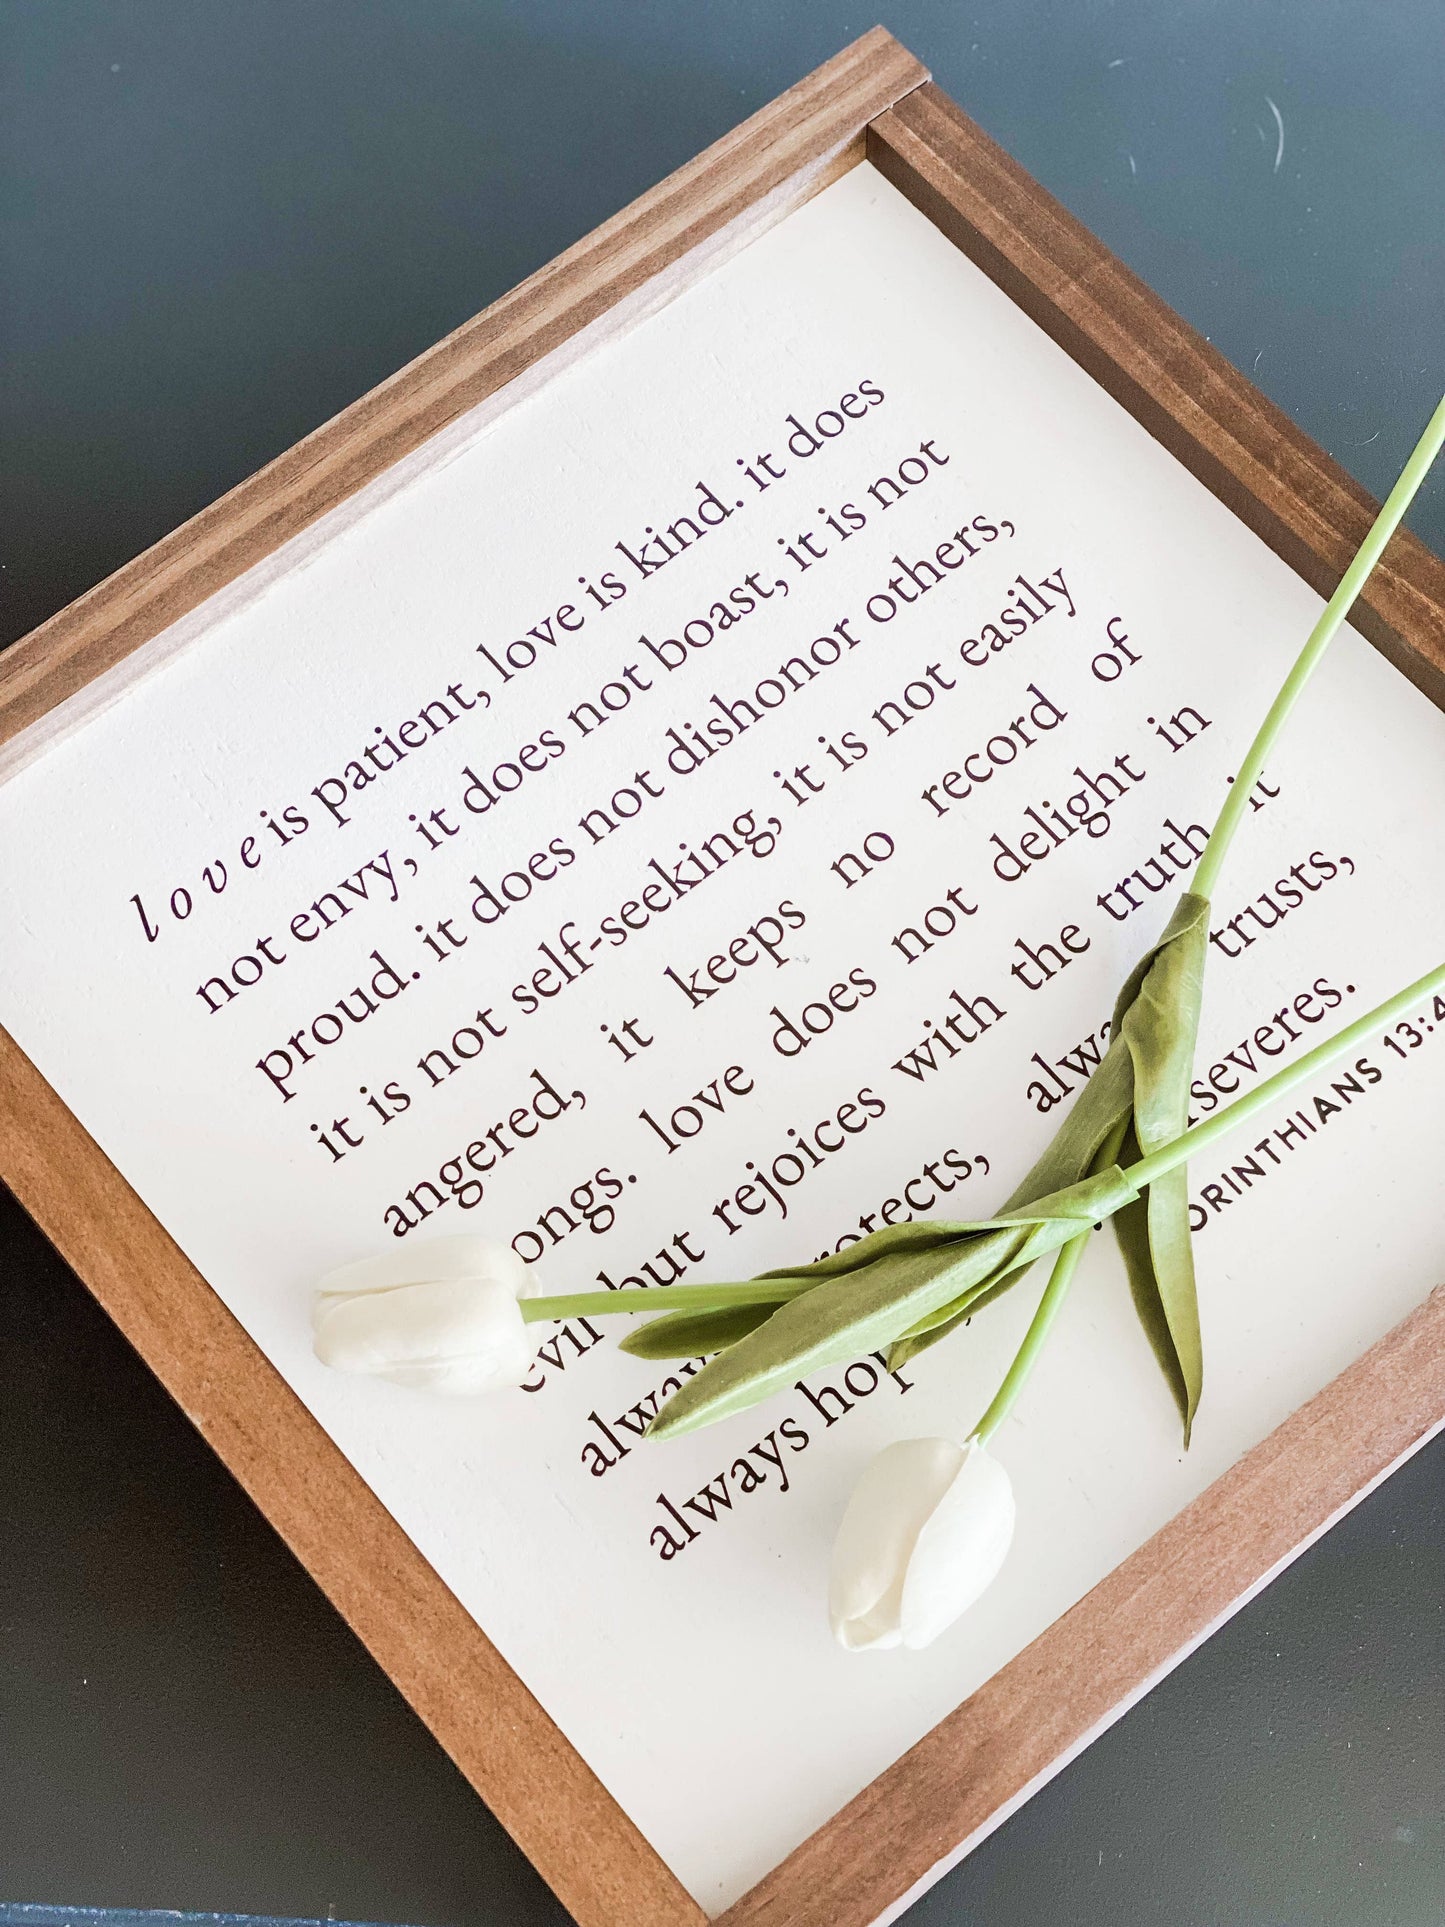 love is patient, love is kind. it does
not envy, it does not boast, it is not
proud. it does not dishonor others,
it is not self-seeking, it is not easily
angered, it keeps no record of
ongs. love does not delight in
evil but rejoices with the truth. it
always rotects, always trusts,
always hop severes.
ORINTHIANS 13:4